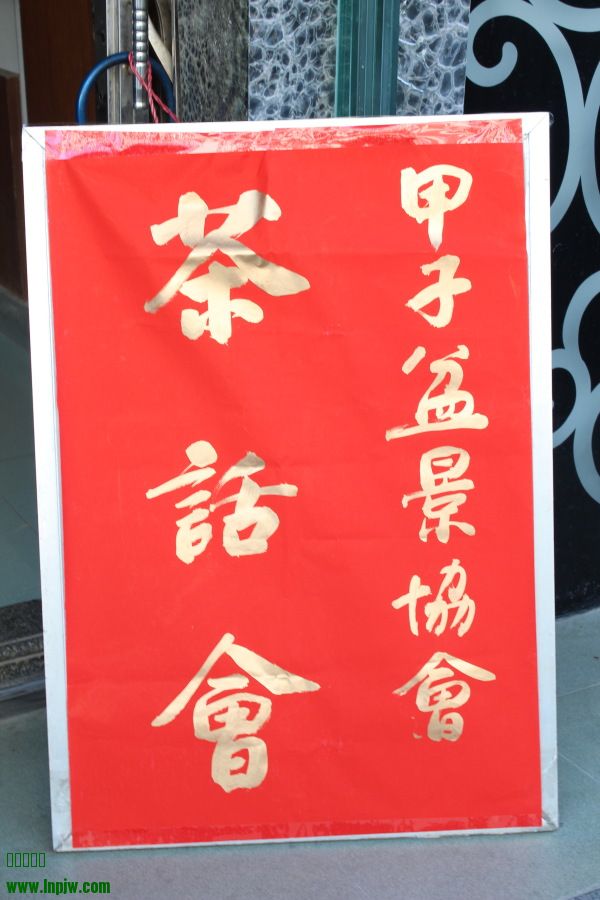 甲子盆景協會
茶話會
www.lnpjw.com